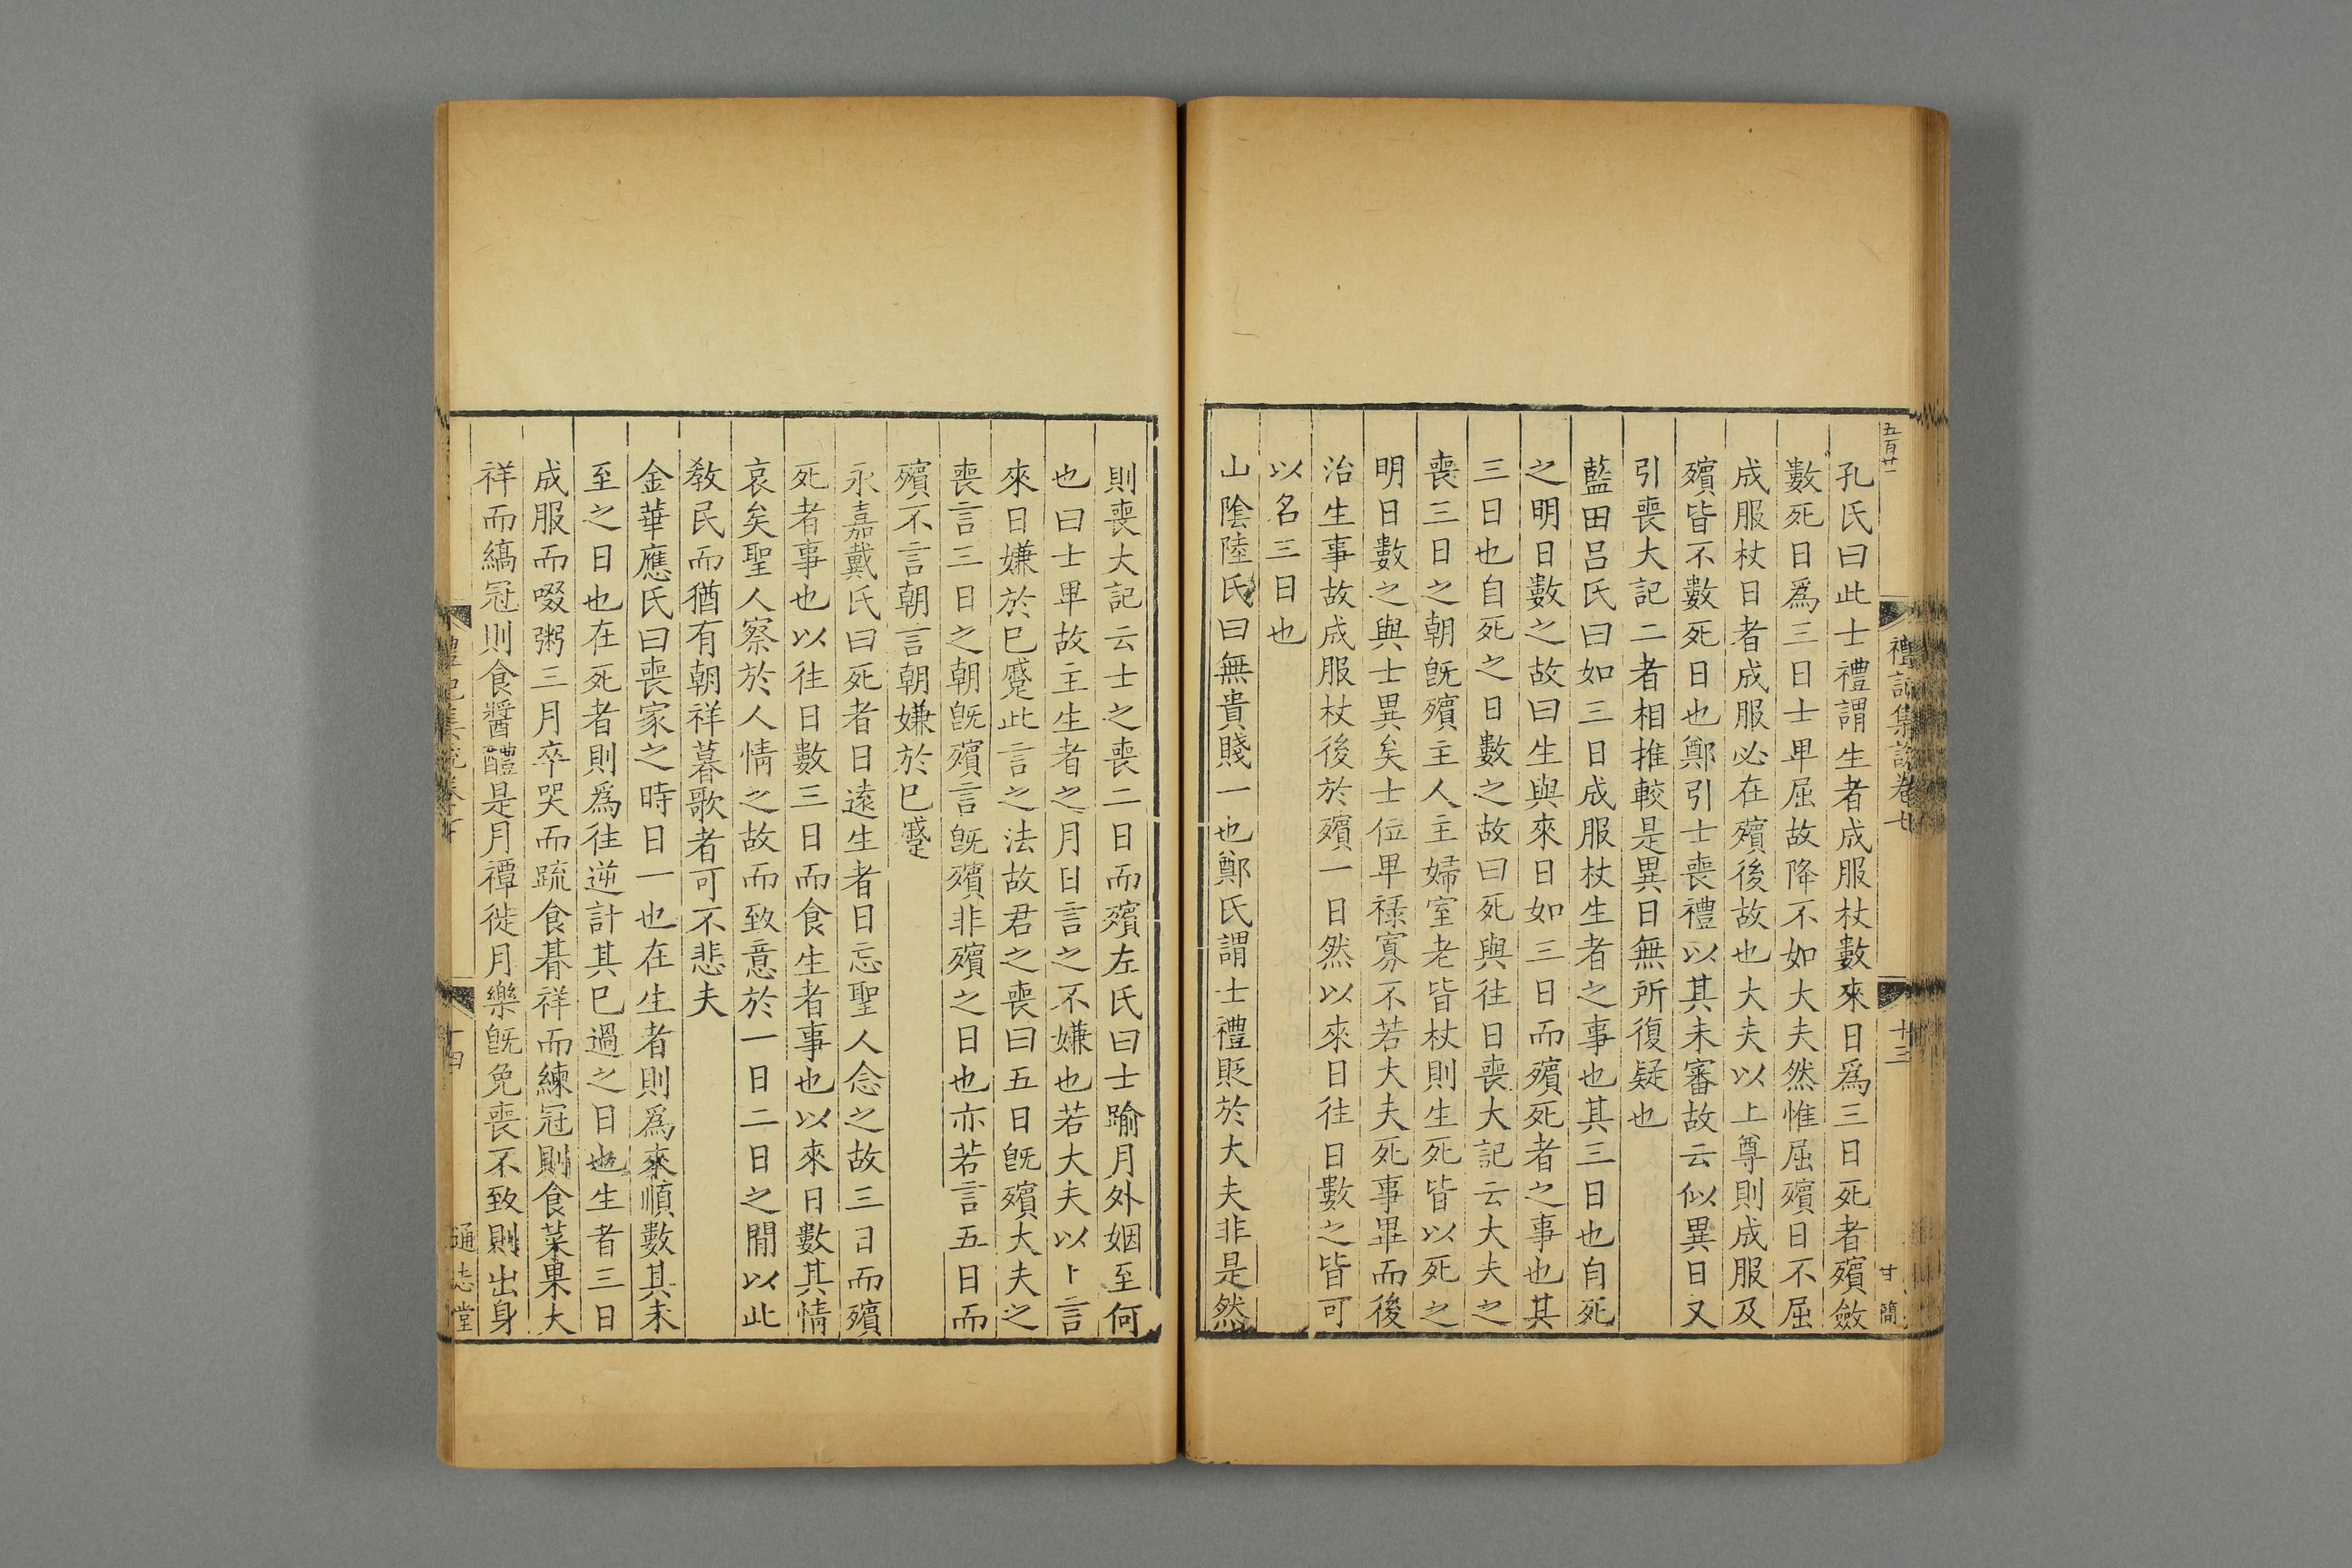 五百廿一
禮記集說卷七
十三
甘簡
孔氏曰此士禮謂生者成服杖數來日爲三日死者殯斂
數死日爲三日士卑屈故降不如大夫然惟屈殯日不屈
成服杖日者成服必在殯後故也大夫以上尊則成服及
殯皆不數死日也鄭引士喪禮以其未審故云似異日又
引喪大記二者相推較是異日無所復疑也
藍田呂氏曰如三日成服杖生者之事也其三日也自死
之明日數之故曰生與來日如三日而殯死者之事也其
三日也自死之日數之故曰死與往日喪大記云大夫之
喪三日之朝旣殯主人主婦室老皆杖則生死皆以死之
明日數之與士異矣士位卑祿寡不若大夫死事畢而後
治生事故成服杖後於殯一日然以來日往日數之皆可
以名三日也
山陰陸氏曰無貴賤一也鄭氏謂士禮貶於大夫非是然
則喪大記云士之喪二日而殯左氏曰士踰月外姻至何
也曰士卑故主生者之月日言之不嫌也若大夫以上言
來日嫌於已蹙此言之法故君之喪曰五日旣殯大夫之
喪言三日之朝旣殯言旣殯非殯之日也亦若言五日而
殯不言朝言朝嫌於已蹙
永嘉戴氏曰死者日遠生者日忘聖人念之故三日而殯
死者事也以往日數三日而食生者事也以來日數其情
哀矣聖人察於人情之故而致意於一日二日之間以此
敎民而猶有朝祥暮歌者可不悲夫
金華應氏曰喪家之時日一也在生者則爲來順數其未
至之日也在死者則爲往逆計其已過之日也生者三日
成服而啜粥三月卒哭而疏食朞祥而練冠則食菜果大
祥而縞冠則食醬醴是月禫徙月樂旣免喪不致則出身
禮記集說卷七
十四
通志堂